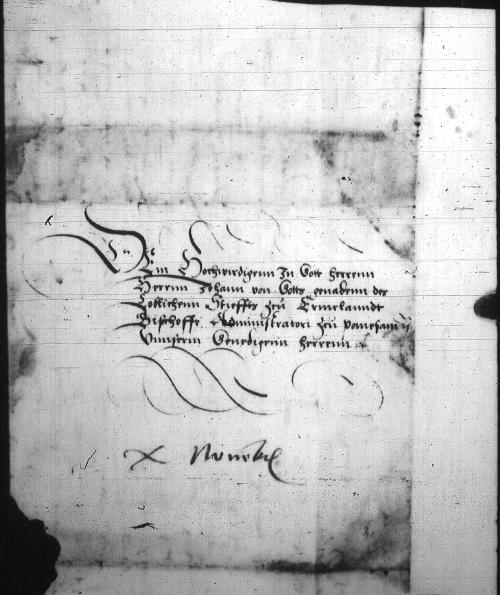 Dem Hochwirdigenn Inn Gott herrenn
Herrnn Johann von Gotts genadenn des
Loblichenn Stieffts zeu Ermelanndt
Bischoffe Administratori zeu
Unnserm Genedigenn herrenn
X Novemb